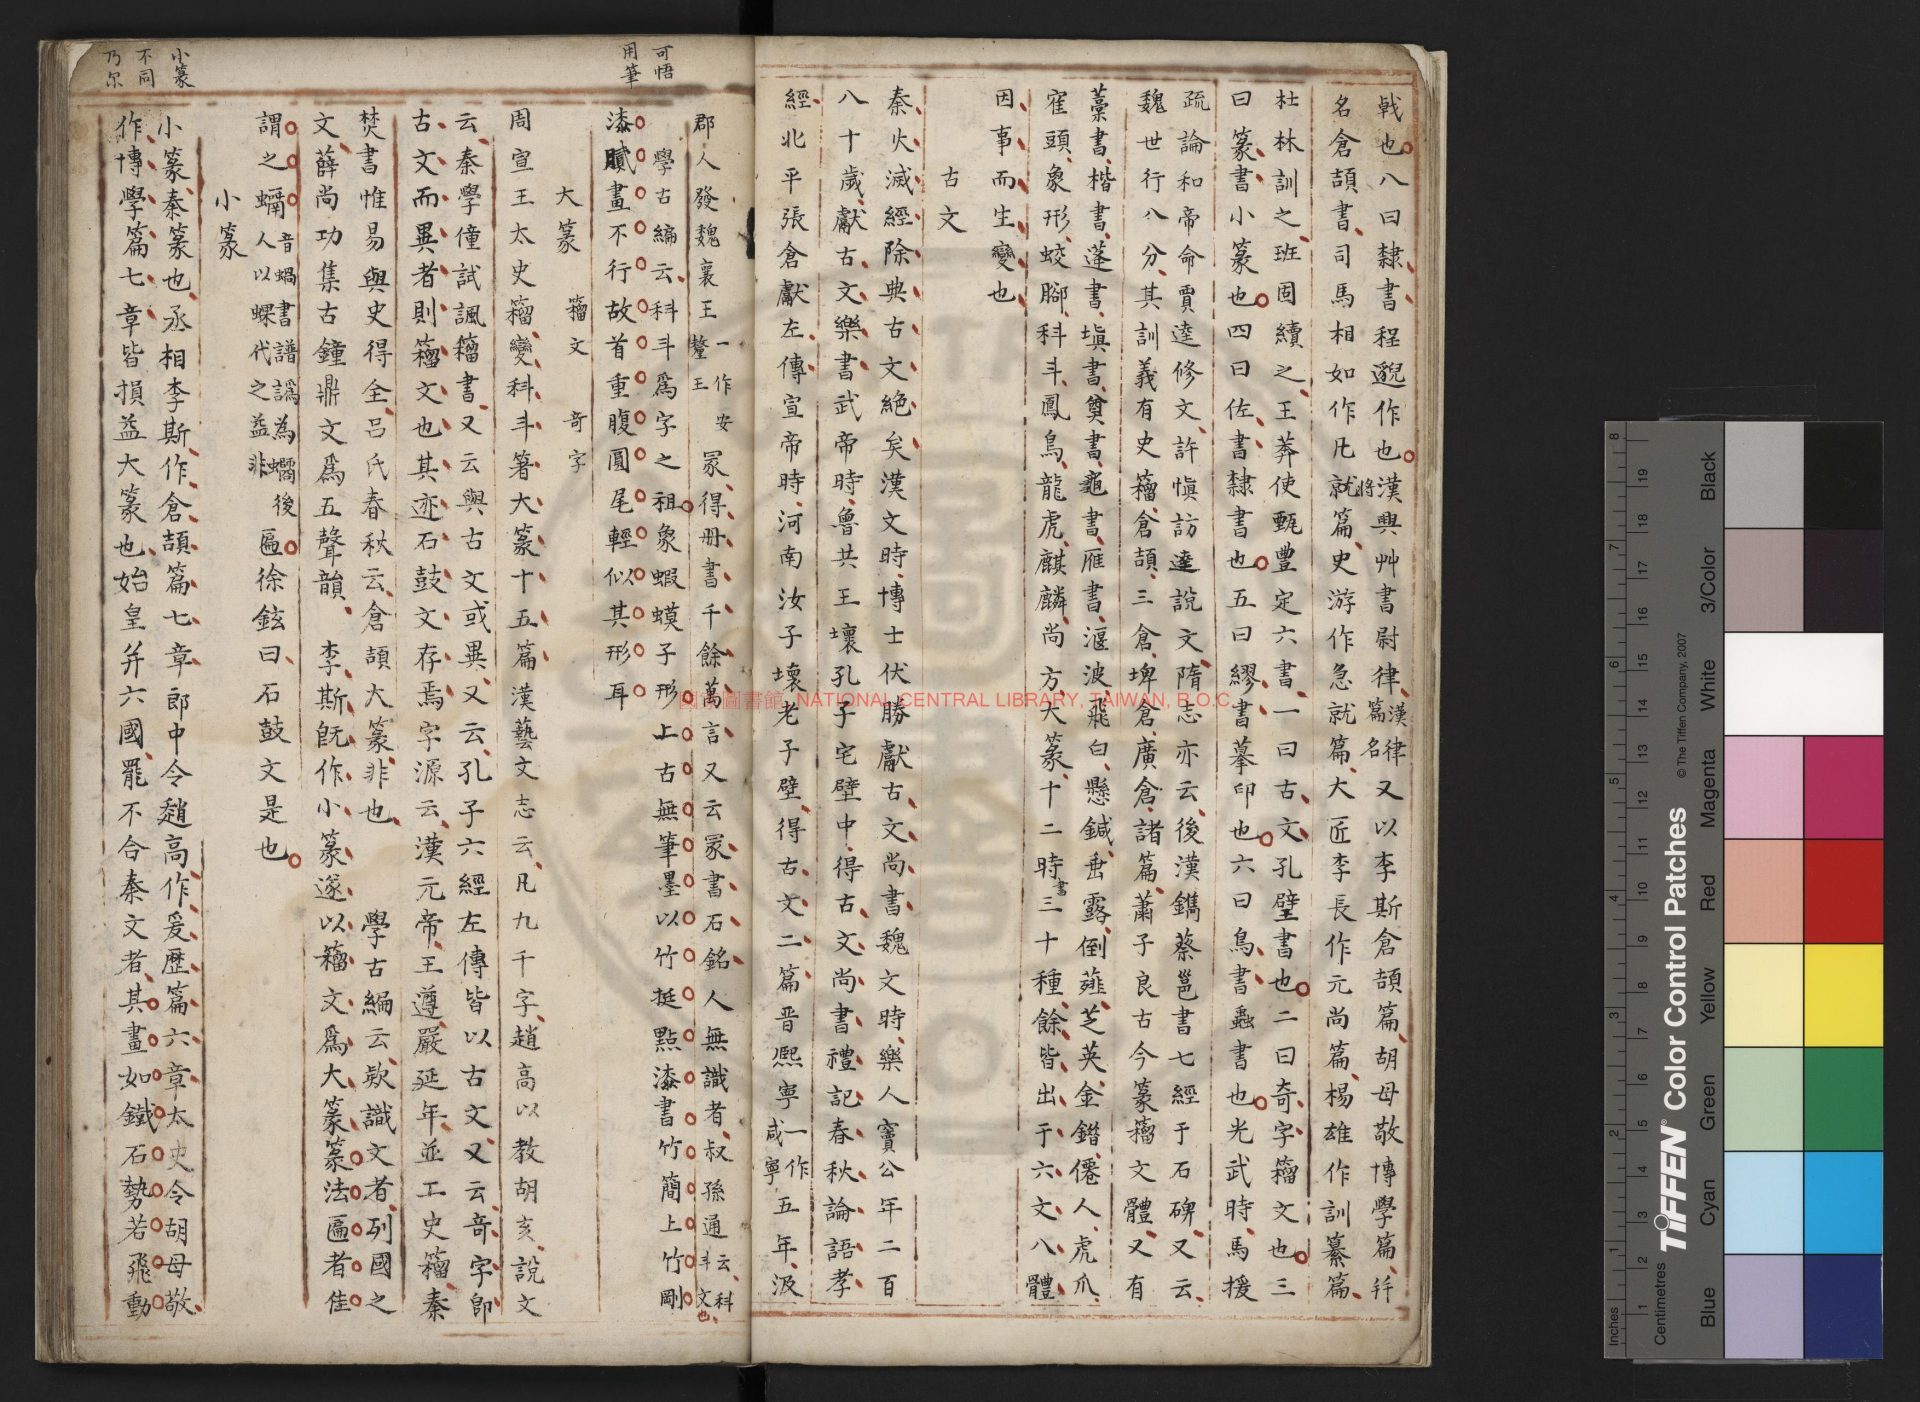 戟也八曰隸書程邈作也漢興艸書尉律漢律篇名又以李斯倉頡篇胡母敬博學篇幷
名倉頡書司馬相如作凡將就篇史游作急就篇大匠李長作元尚篇楊雄作訓纂篇
杜林訓之班固續之王莽使甄豊定六書一曰古文孔壁書也二曰奇字籀文也三
曰篆書小篆也四曰佐書隸書也五曰繆書摹印也六曰鳥書蟲書也光武時馬援
疏論和帝命賈逵修文許慎訪逹說文隋志亦云後漢鐫蔡邕書七經于石碑又云
魏世行八分其訓義有史籀倉頡三倉埤倉廣倉諸篇蕭子良古今篆籀文體又有
藁書楷書蓬書塡書奠書龜書雁書溫波飛白懸鍼垂露倒薤芝英金錯僊人虎爪
寉頭象形蛟腳科斗鳳鳥龍虎麒麟尚方大篆十二時書三十種餘皆出于六文八體
因事而生變也
古文
秦火滅經除典古文絶矣漢文時博士伏勝獻古文尚書魏文時樂人竇公年二百
八十歲獻古文樂書武帝時魯共王壞孔子宅壁中得古文尚書禮記春秋論語孝
經北平張倉獻左傳宣帝時河南汝子壞老子壁得古文二篇晋熙寧一作咸寧五年汲
可悟用筆
郡人發魏襄王一作安釐王冢得册書千餘萬言又云冢書石銘人無識者叔孫通云科斗文也
學古編云科斗爲字之祖象蝦蟆子形上古無筆墨以竹挺點漆書竹簡上竹剛
漆膩畫不行故首重腹圓尾輕似其形耳
大篆 籀文 奇字
周宣王太史籀變科斗箸大篆十五篇漢藝文志云凡九千字趙高以教胡亥說文
云秦學僮試諷籀書又云與古文或異又云孔子六經左傳皆以古文又云竒字卽
古文而異者則籀文也其迹石鼓文存焉字源云漢元帝王遵嚴延年並工史籀秦
焚書惟易與史得全呂氏春秋云倉頡大篆非也 學古編云欵識文者列國之
文薛尚功集古鐘鼎文爲五聲韻 李斯旣作小篆遂以籀文爲大篆篆法匾者佳
謂之蝸音蝸書譜譌為蠣匾後人以螺代之益非徐鉉曰石鼓文是也
小篆
小篆不同乃尔
小篆秦篆也丞相李斯作倉頡篇七章郎中令趙高作爰歷篇六章太史令胡母敬
作博學篇七章皆損益大篆也始皇并六國罷不合秦文者其畫如鐵石勢若飛動
國家圖書館, NATIONAL CENTRAL LIBRARY, TAIWAN, R.O.C.
Inches
Centimetres
TIFFEN® Color Control Patches
© The Tiffen Company, 2007
Blue
Cyan
Green
Yellow
Red
Magenta
White
3/Color
Black